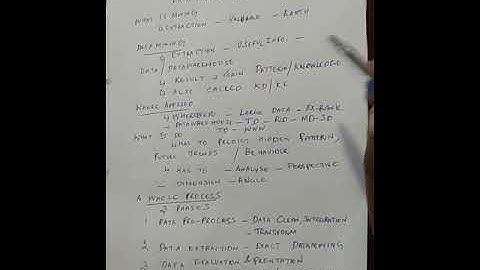 WHAT IS MINING
EXTRACTION - VALUABLE - EARTH
DATA MINING
EXTRACTION - USEFUL INFO. -
DATA/DATAWAREHOUSE
RESULT → GAIN PATTERN/KNOWLEDGE
ALSO CALLED KD/KE
WHERE APPLIED
WHEREVER - LARGE DATA - EX-BANK
DATAWAREHOUSE - TD - RD - MD-SD
WHAT IT DO TO - WWW
HAS TO PREDICT HIDDEN PATTERN,
FUTURE TRENDS / BEHAVIOUR
HAS TO - ANALYSE - PERSPECTIVE
- DIMENSION - ANGLE
A WHOLE PROCESS
PHASES
1 DATA PRE-PROCESS - DATA CLEAN, INTEGRATION
- TRANSFORM
2 DATA EXTRACTION - EXACT DATAMINING
3 DATA EVALUATION & PRESENTATION